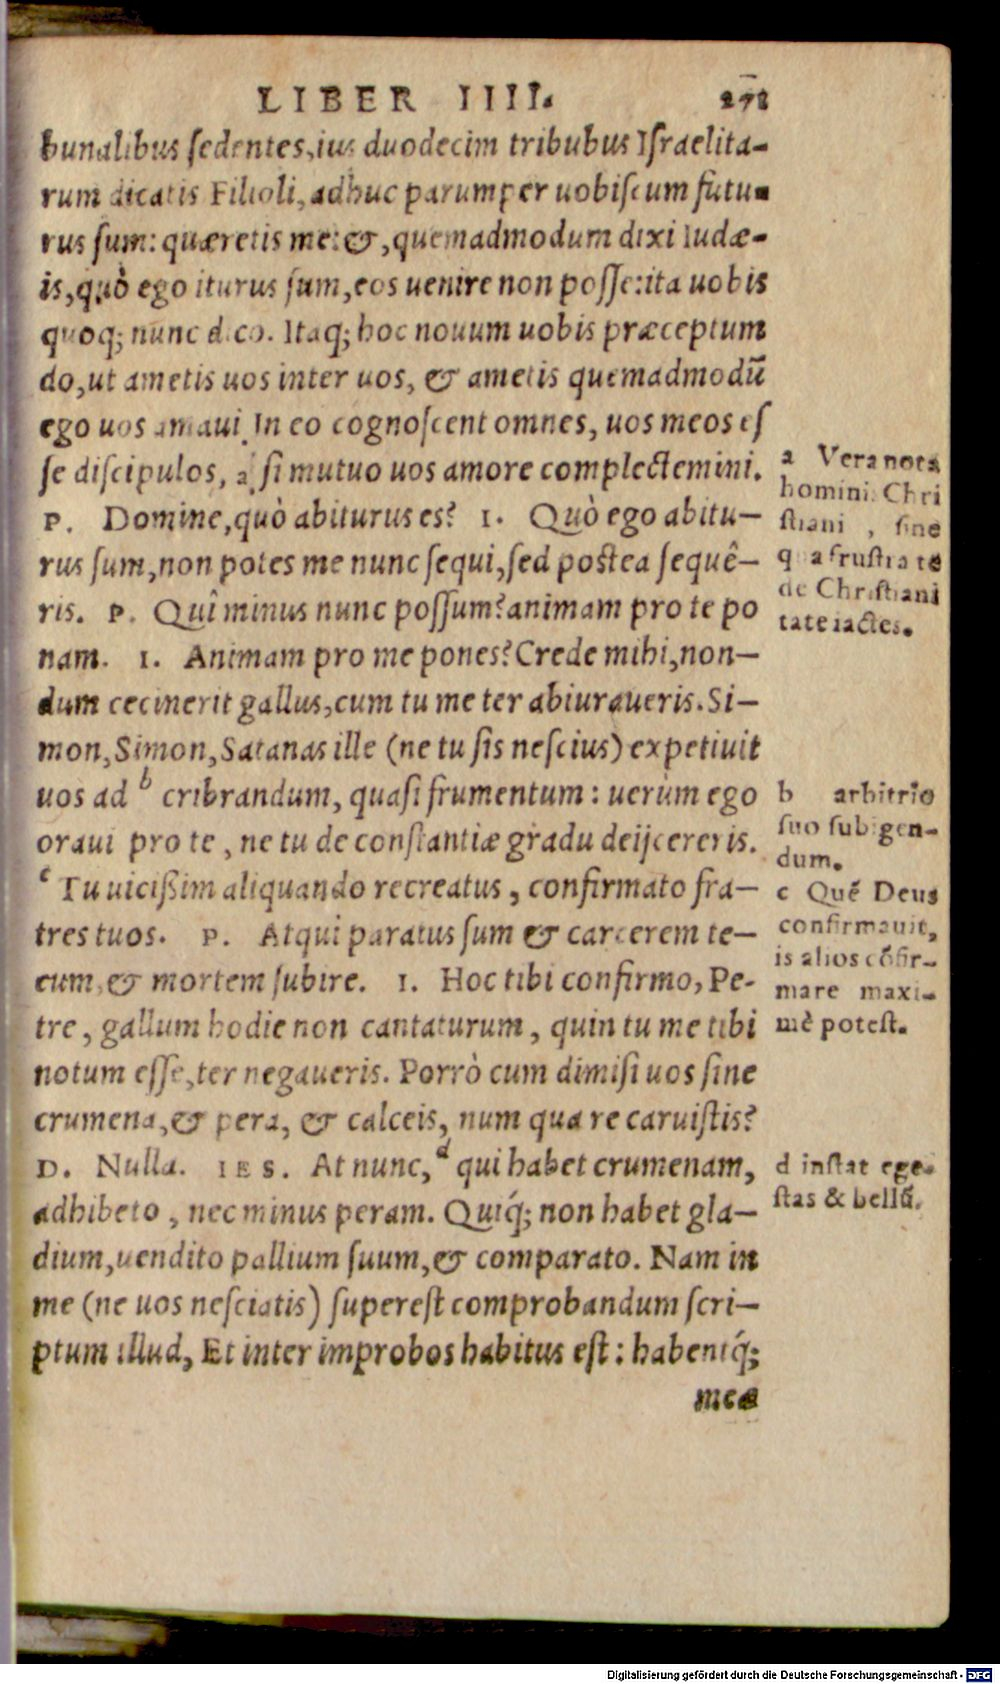 LIBER IIII. 271
bunalibus ſedentes, ius duodecim tribubus Iſraelita-
rum dicatis Filioli, adhuc parumper uobiſcum futu-
rus ſum: quæretis me: &, quemadmodum dixi Iudæ-
is, quò ego iturus ſum, eos uenire non poſſe: ita uobis
quoq; nunc dico. Itaq; hoc nouum uobis præceptum
do, ut ametis uos inter uos, & ametis quemadmodũ
ego uos amaui. In eo cognoſcent omnes, uos meos eſ
ſe diſcipulos, a ſi mutuo uos amore complectemini.
P. Domine, quò abiturus es? I. Quò ego abitu-
rus ſum, non potes me nunc ſequi, ſed postea ſequê-
ris. P. Quî minus nunc poſſum? animam pro te po
nam. I. Animam pro me pones? Crede mihi, non-
dum cecinerit gallus, cum tu me ter abiuraueris. Si-
mon, Simon, Satanas ille (ne tu ſis neſcius) expetiuit
uos ad b cribrandum, quaſi frumentum: uerùm ego
oraui pro te, ne tu de conſtantiæ gradu deijcereris.
c Tu uicißim aliquando recreatus, confirmato fra-
tres tuos. P. Atqui paratus ſum & carcerem te-
cum, & mortem ſubire. I. Hoc tibi confirmo, Pe-
tre, gallum hodie non cantaturum, quin tu me tibi
notum eſſe, ter negaueris. Porrò cum dimiſi uos ſine
crumena, & pera, & calceis, num qua re caruiſtis?
D. Nulla. IES. At nunc, d qui habet crumenam,
adhibeto, nec minus peram. Quiq́; non habet gla-
dium, uendito pallium ſuum, & comparato. Nam in
me (ne uos neſciatis) ſupereſt comprobandum ſcri-
ptum illud, Et inter improbos habitus eſt: habentq́;
mea
a Vera nota
hominis Chri
ſtiani, ſine
qua fruſtra te
de Chriſtiani
tate iactes.
b arbitrio
ſuo ſubigen-
dum.
c Quẽ Deus
confirmauit,
is alios cõfir-
mare maxi-
mè poteſt.
d inſtat ege-
ſtas & bellũ.
Digitalisierung gefördert durch die Deutsche Forschungsgemeinschaft - DFG